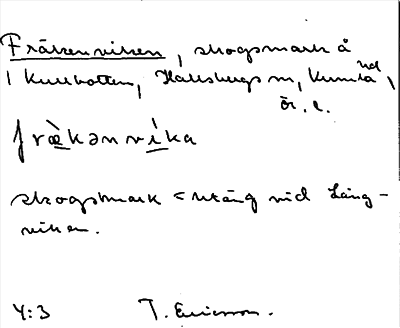 Fräkenviken, skogsmark å
1 Kullbotten, Hallsbergs sn, Kumla hd,
Ör. l.
frækənvika
skogsmark < utäng vid Lång-
viken.
4:3 T. Ericsson.